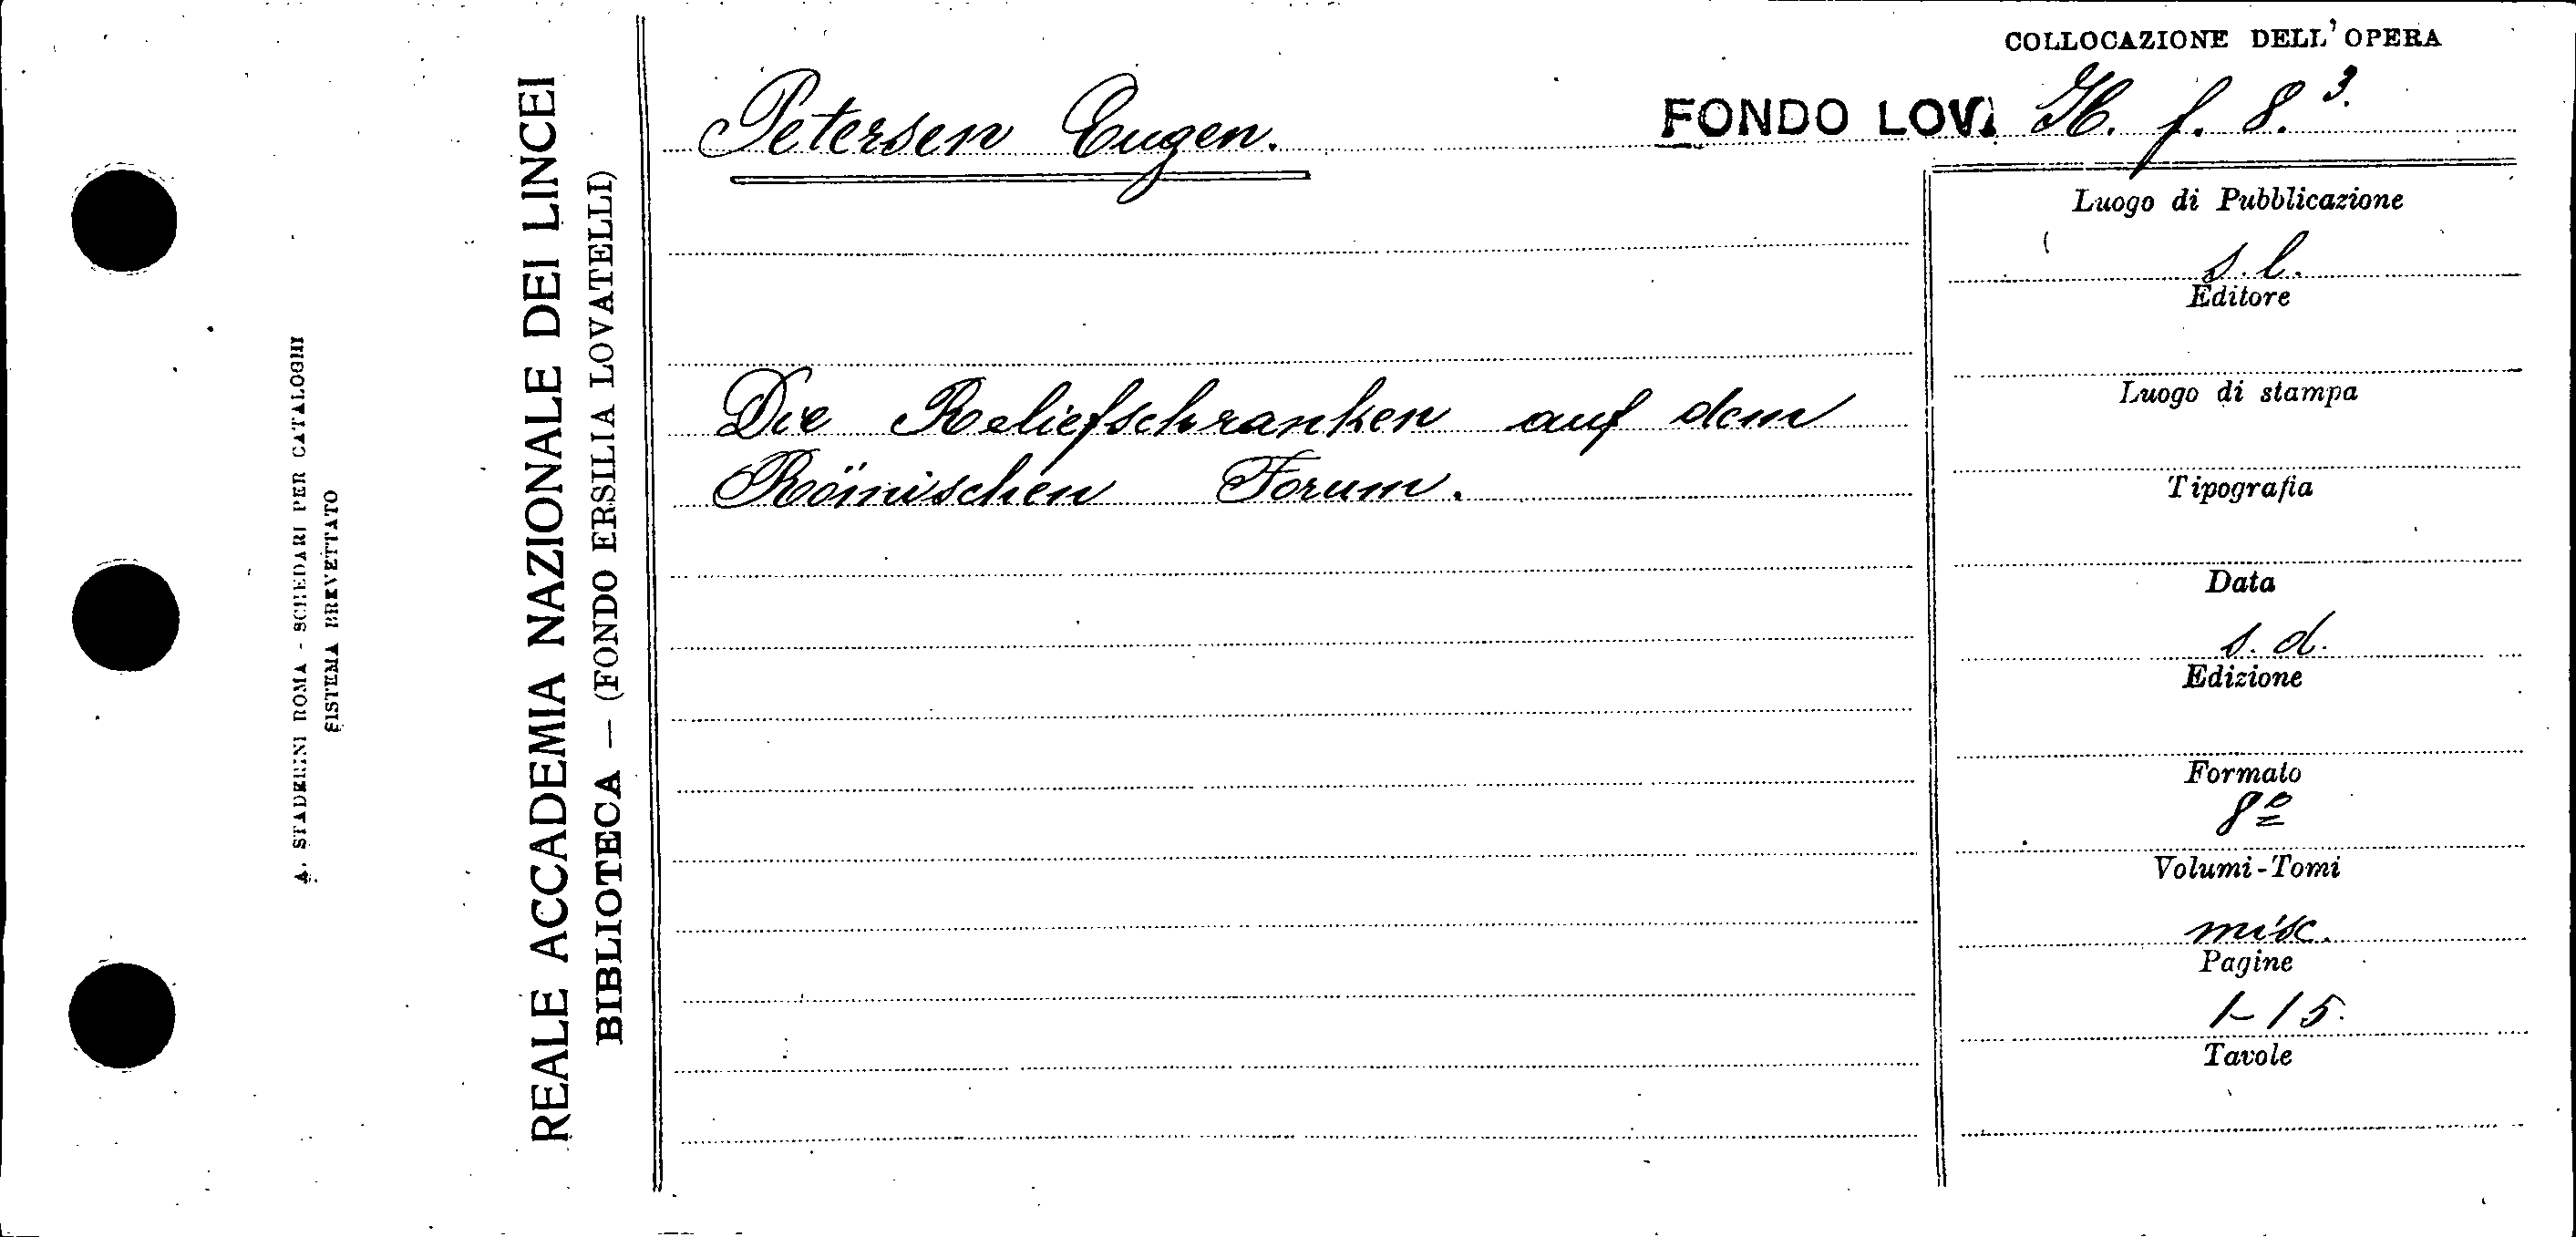 A. STADERINI ROMA - SCHEDARI PER CATALOGHI
SISTEMA BREVETTATO
REALE ACCADEMIA NAZIONALE DEI LINCEI
BIBLIOTECA — (FONDO ERSILIA LOVATELLI)
COLLOCAZIONE DELL'OPERA
Petersen Eugen.
FONDO LOV. H. f. 8.3.
Die Reliefschranken auf dem
Römischen Forum.
Luogo di Pubblicazione
s. l.
Editore
Luogo di stampa
Tipografia
Data
s. d.
Edizione
Formato
8º
Volumi-Tomi
misc.
Pagine
1-15.
Tavole